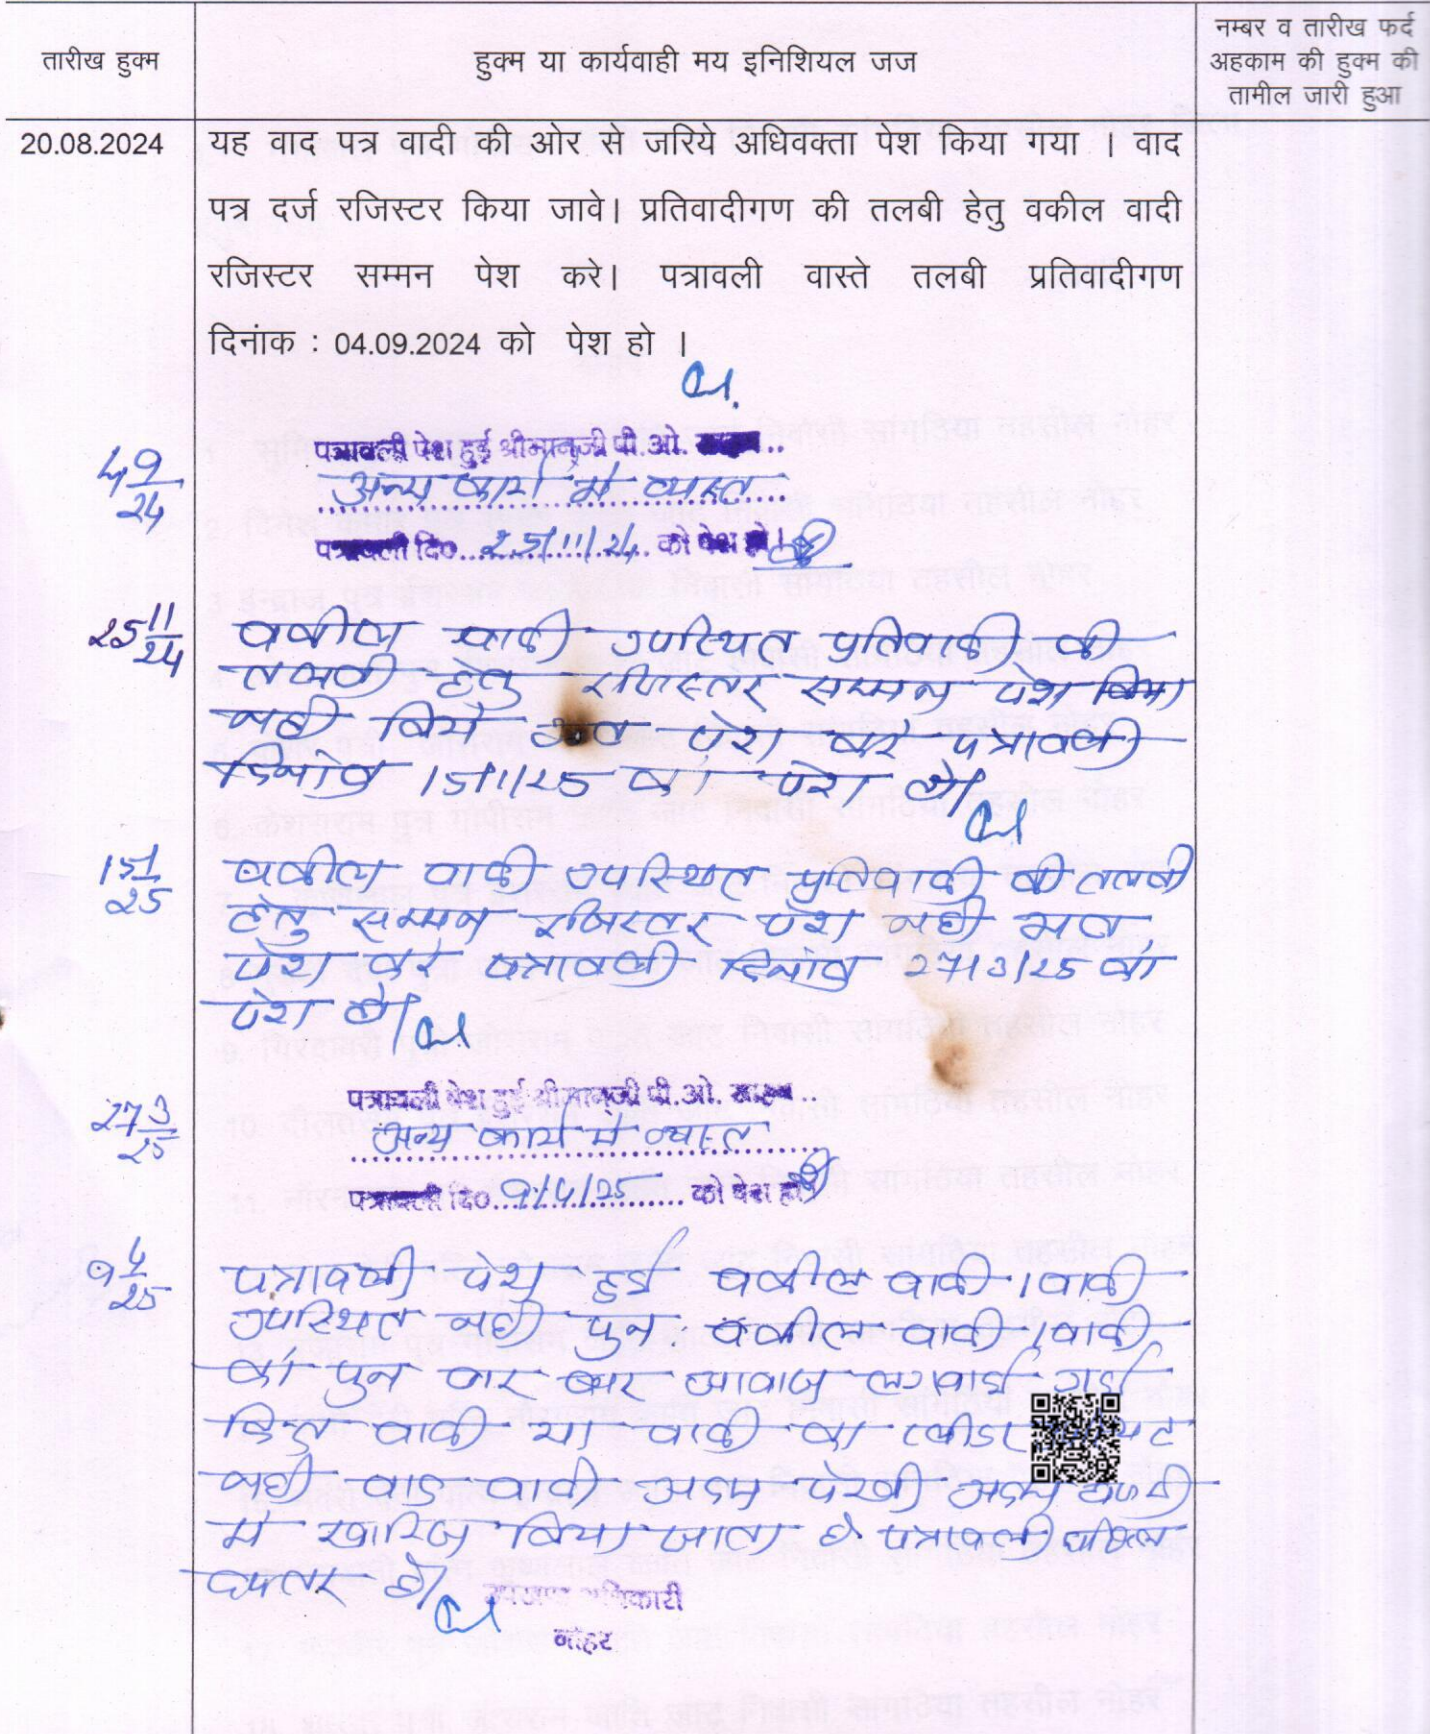 तारीख हुक्म
हुक्म या कार्यवाही मय इनिशियल जज
नम्बर व तारीख फर्द
अहकाम की हुक्म की
तामील जारी हुआ
20.08.2024
यह वाद पत्र वादी की ओर से जरिये अधिवक्ता पेश किया गया । वाद
पत्र दर्ज रजिस्टर किया जावे। प्रतिवादीगण की तलबी हेतु वकील वादी
रजिस्टर सम्मन पेश करे। पत्रावली वास्ते तलबी प्रतिवादीगण
दिनांक : 04.09.2024 को पेश हो ।
4/9/24
पत्रावली पेश हुई श्रीमान्जी पी.ओ. साहब..
अन्य कार्य में व्यस्त
पत्रावली दि० 25/11/24 को पेश हो।
25/11/24
वकील वादी उपस्थित प्रतिवादी की
तलबी हेतु रजिस्टर सम्मन पेश
नही किये अब पेश करे पत्रावली
दिनांक 15/1/25 को पेश हो।
15/1/25
वकील वादी उपस्थित प्रतिवादी की तलबी
हेतु सम्मन रजिस्टर पेश नही अब
पेश करे पत्रावली दिनांक 27/3/25 को
पेश हो।
27/3/25
पत्रावली पेश हुई श्रीमान्जी पी.ओ. साहब..
अन्य कार्य में व्यस्त
पत्रावली दि० 9/4/25 को पेश हो।
9/4/25
पत्रावली पेश हुई वकील वादी/वादी
उपस्थित नही पुन: वकील वादी/वादी
को पुन बार बार आवाज लगवाई गई
किन्तु वादी या वादी का प्लीडर
नही वाद वादी अदम पेरवी अदम
में खारिज किया जाता है पत्रावली दाखिल
दफ्तर हो।
उपखण्ड अधिकारी
नोहर